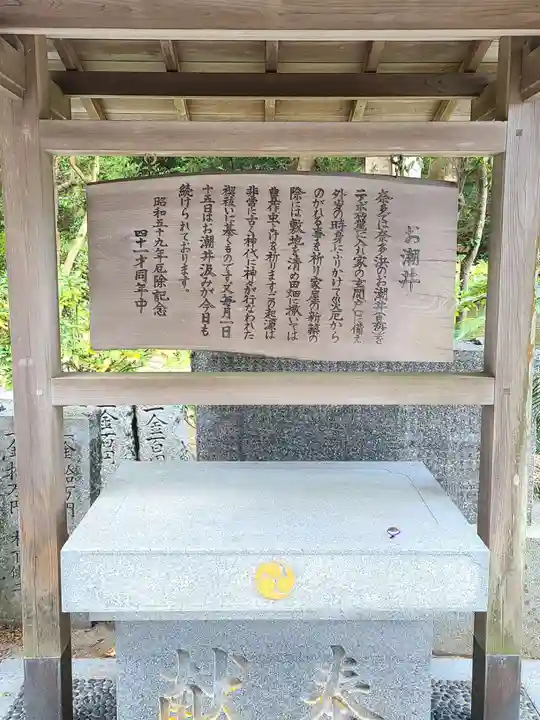 お潮井
奈多では奈多浜のお潮井(真砂)を
テボ(籠)に入れ家の玄関などに備え
外出の時身にふりかけて災厄から
のがれる事を祈り家屋の新築の
際には敷地を清め田畑に撒いては
豊作虫よけを祈ります この起源は
非常に古く神代に神々が行なわれた
禊祓いに基くものです 又毎月一日
十五日はお潮井汲みが今日も
続けられております。
昭和五十九年厄除記念
四十一才同年中
奉献
一金
一金二百
一金拾万円
一金拾万円